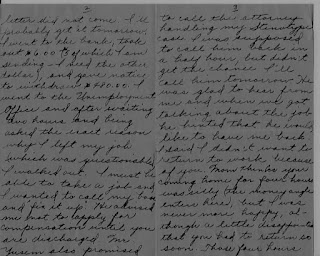 2
letter did not come. I'll
probably get it tomorrow.
I went to the bank, took
out $6.00 (5 of which I am
sending - I need the other
dollar), and gave notice
to withdraw $400.00. I
went to the Unemployment
Office and after waiting
two hours and being
asked the exact reason
why I left my job
which was questionable
I walked out. I must be
able to take a job and
I wanted to call my boss
and fix it up. He advised
me not to apply for
compensation until you
are discharged. Mr
also promised
3
to call the attorney
handling my Stenotype
case. I was supposed
to call him back in
a half hour but didn't
get the chance. I'll
call him tomorrow. He
was glad to hear from
me and when we got
talking about the job
he hinted that he would
like to have me back.
I said I didn't want to
return to work because
of you. Now then your
coming home for four hours
was silly (the money angle
enters here), but I was
never more happy, al-
though a little disappointed
that you had to return so
soon. Those four hours